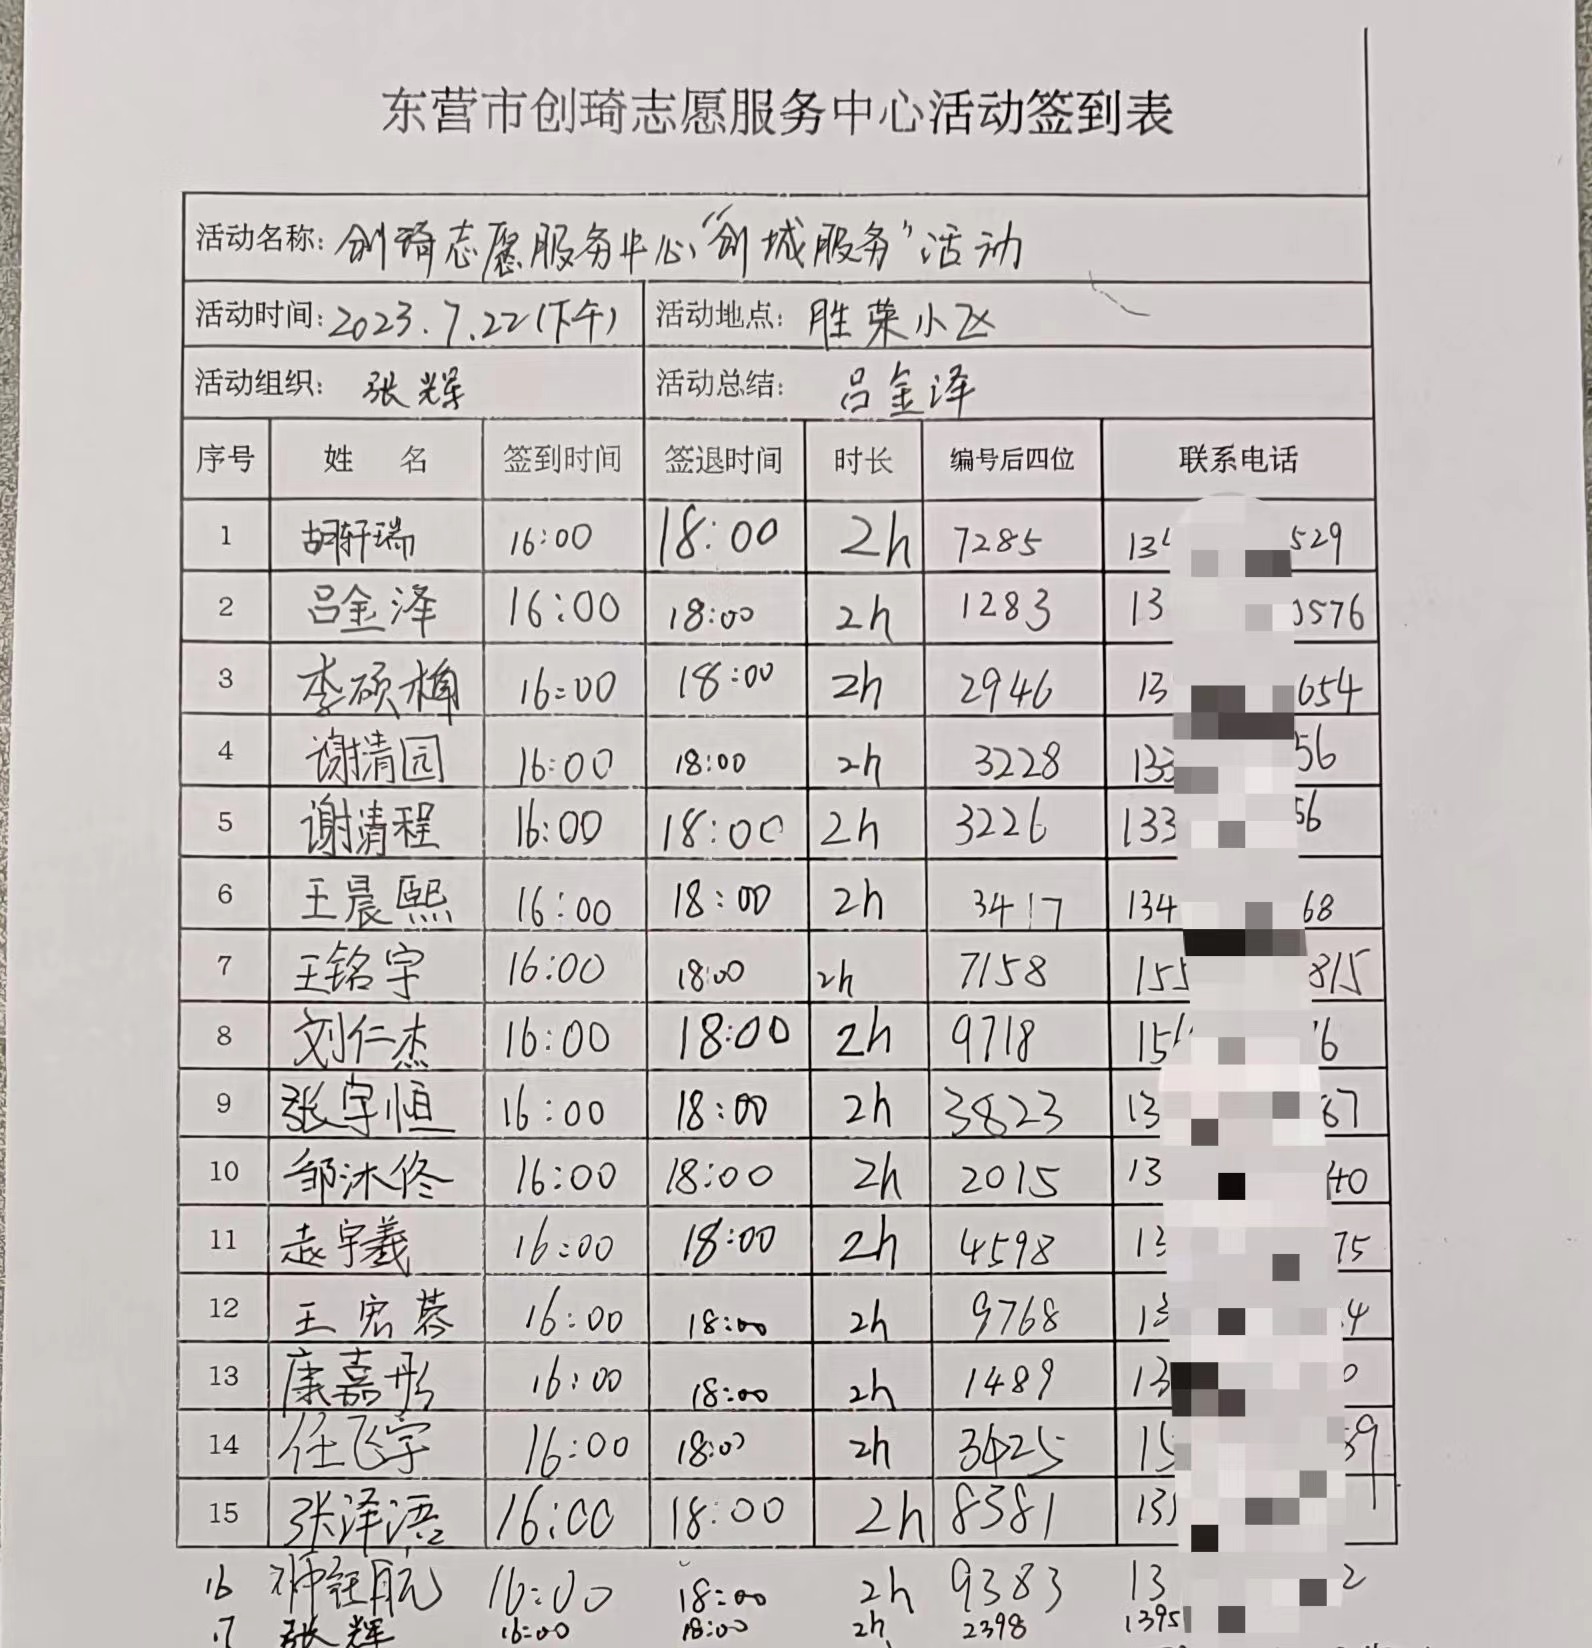 东营市创琦志愿服务中心活动签到表
活动名称: 创琦志愿服务中心“创城服务”活动
活动时间: 2023.7.22(下午) 活动地点: 胜荣小区
活动组织: 张辉 活动总结: 吕金泽
序号 姓 名 签到时间 签退时间 时长 编号后四位 联系电话
1 胡轩瑞 16:00 18:00 2h 7285 13 529
2 吕金泽 16:00 18:00 2h 1283 13 0576
3 李硕桐 16:00 18:00 2h 2946 13 654
4 谢清园 16:00 18:00 2h 3228 133 56
5 谢清程 16:00 18:00 2h 3226 133 56
6 王晨熙 16:00 18:00 2h 3417 134 68
7 王铭宇 16:00 18:00 2h 7158 155 815
8 刘仁杰 16:00 18:00 2h 9718 15 6
9 张宇恒 16:00 18:00 2h 3823 13 67
10 邹沐佟 16:00 18:00 2h 2015 13 40
11 袁宇羲 16:00 18:00 2h 4598 13 75
12 王宏蓉 16:00 18:00 2h 9768 13 4
13 康嘉彤 16:00 18:00 2h 1489 13 0
14 任飞宇 16:00 18:00 2h 3425 15 59
15 张泽浯 16:00 18:00 2h 8381 131
16 航 16:00 18:00 2h 9383 13 2
17 张辉 16:00 18:00 2h 2398 1395